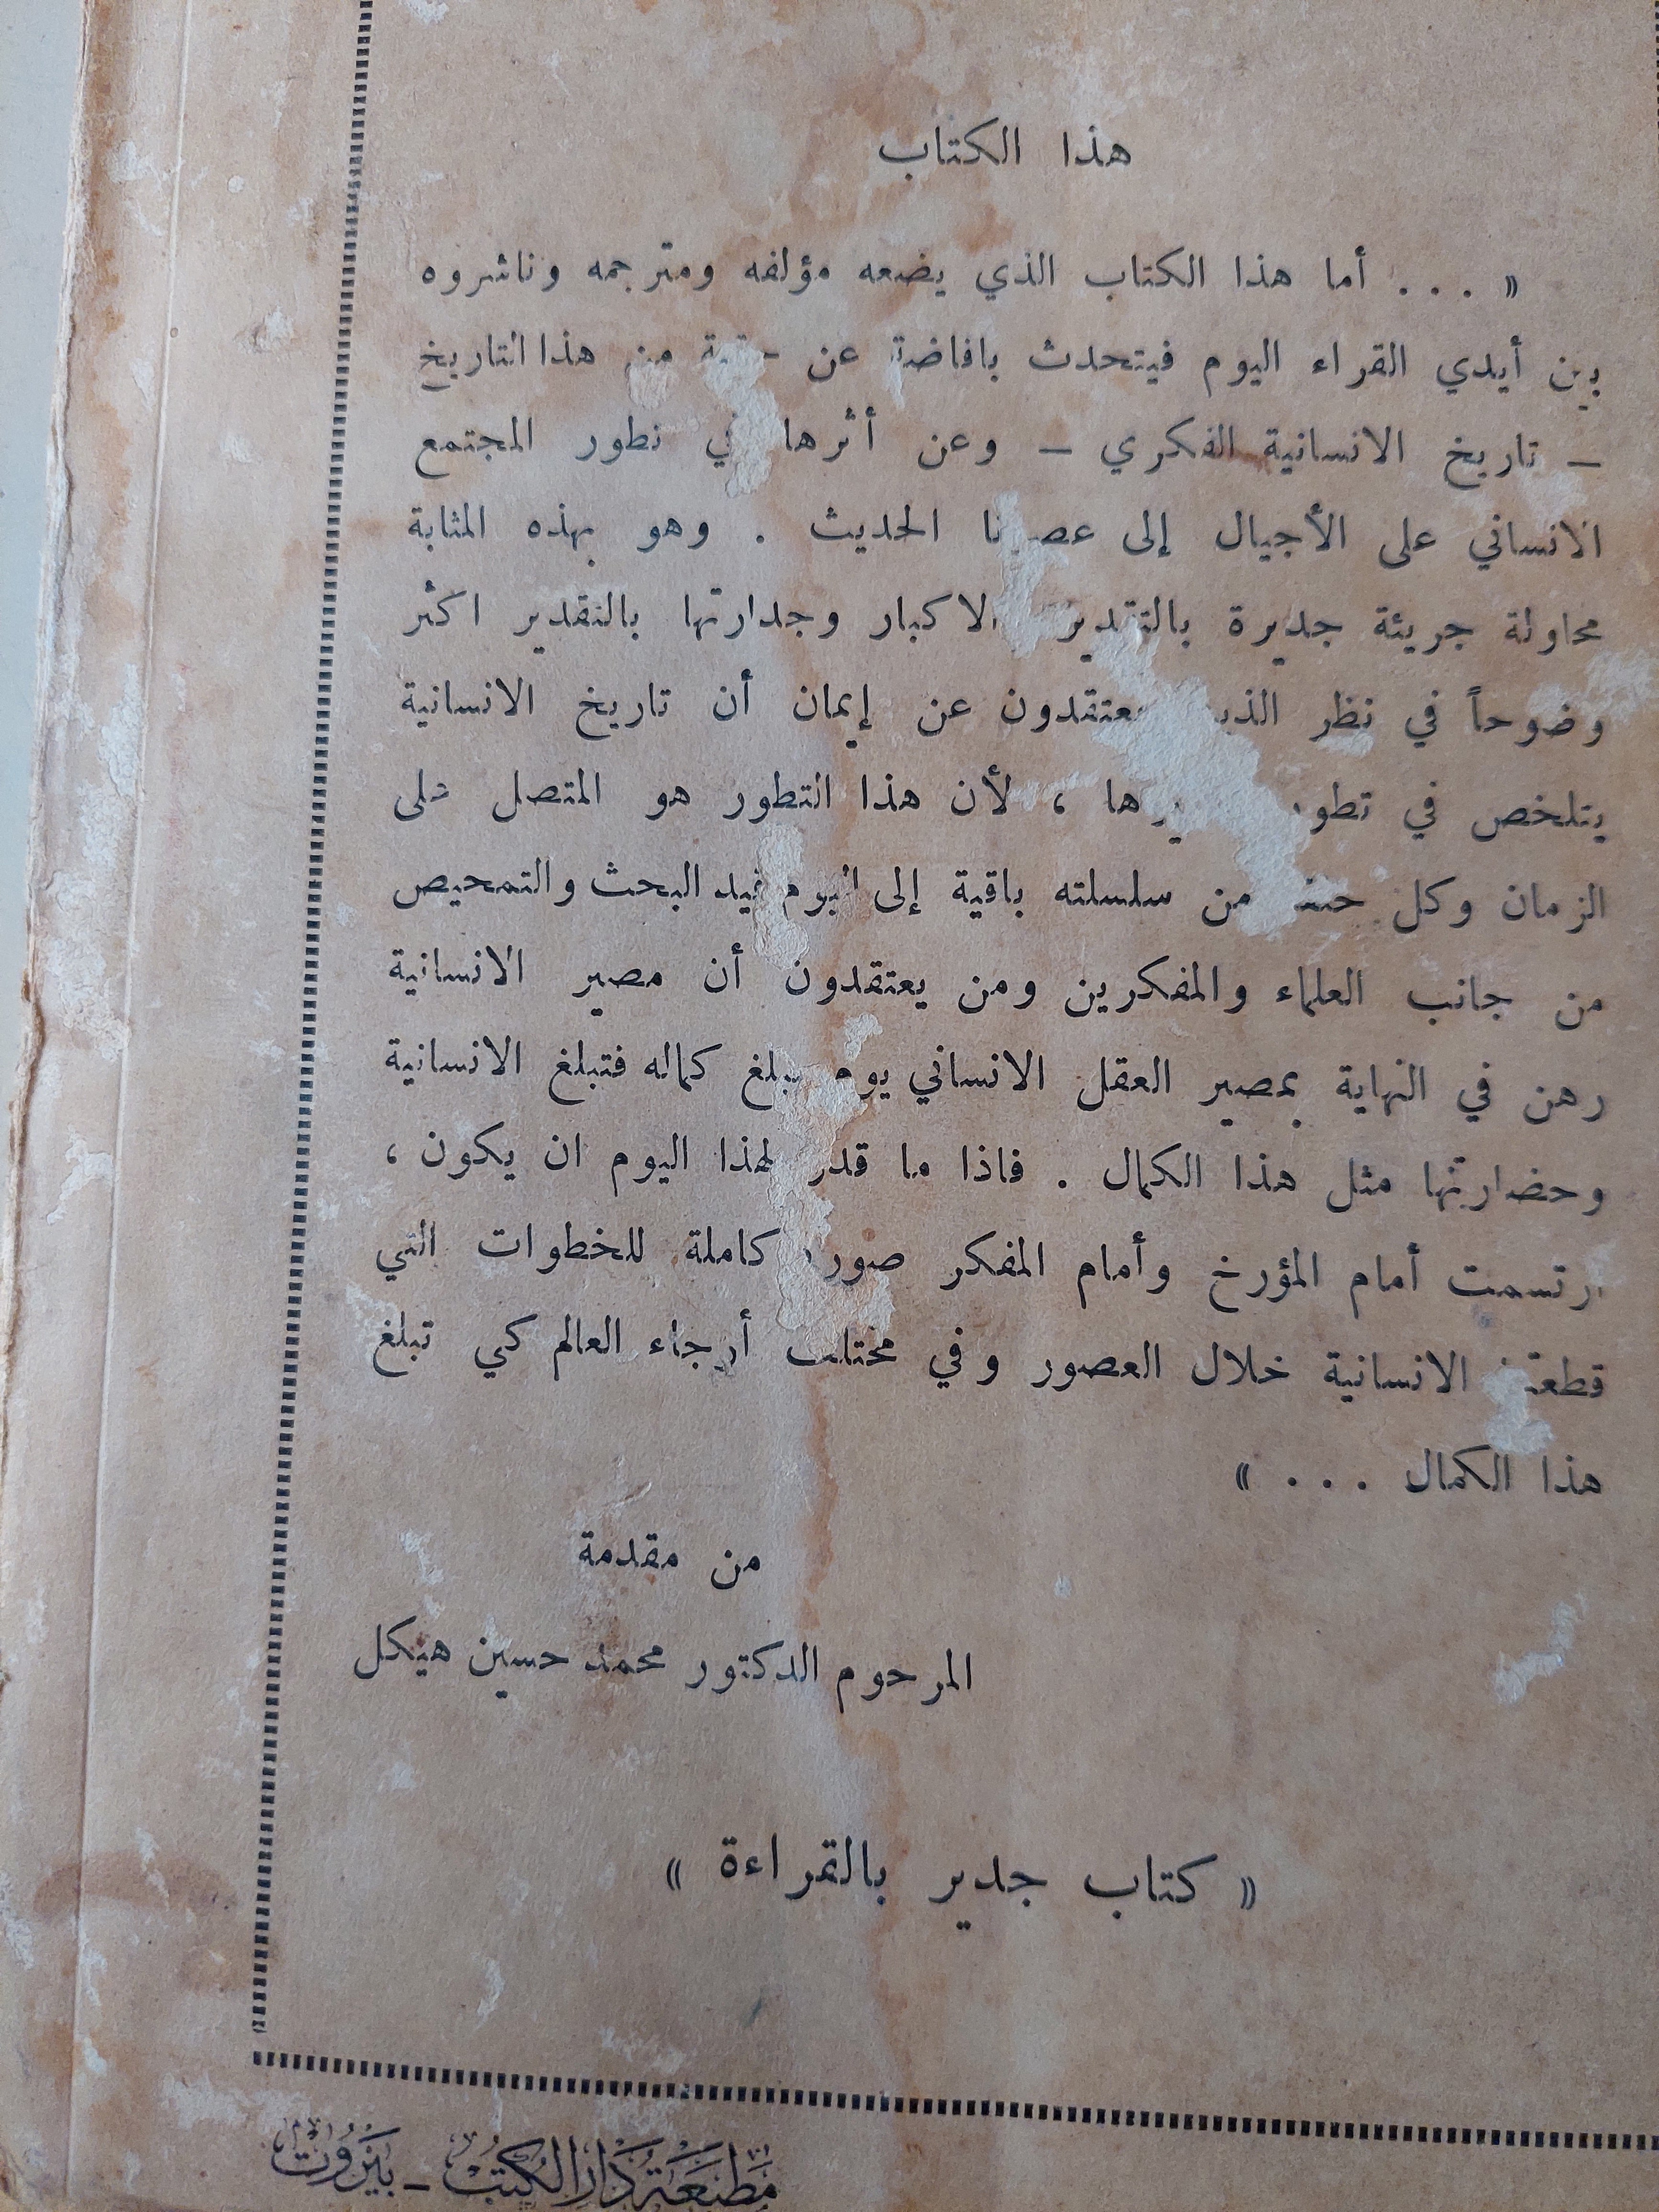 هذا الكتاب
« . . . أما هذا الكتاب الذي يضعه مؤلفه ومترجمه وناشروه
بين أيدي القراء اليوم فيتحدث بافاضة عن حقبة من هذا التاريخ
– تاريخ الانسانية الفكري – وعن أثرها في تطور المجتمع
الانساني على الأجيال إلى عصرنا الحديث . وهو بهذه المثابة
محاولة جريئة جديرة بالتقدير والاكبار وجدارتها بالتقدير اكثر
وضوحاً في نظر الذين يعتقدون عن إيمان أن تاريخ الانسانية
يتلخص في تطور ، لأن هذا التطور هو المتصل على
الزمان وكل من سلسلته باقية إلى اليوم قيد البحث والتمحيص
من جانب العلماء والمفكرين ومن يعتقدون أن مصير الانسانية
رهن في النهاية بمصير العقل الانساني يوم يبلغ كماله فتبلغ الانسانية
وحضارتها مثل هذا الكمال . فاذا ما قدر لهذا اليوم ان يكون ،
ارتسمت أمام المؤرخ وأمام المفكر صورة كاملة للخطوات التي
قطعتها الانسانية خلال العصور وفي مختلف أرجاء العالم كي تبلغ
هذا الكمال . . . »
من مقدمة
المرحوم الدكتور محمد حسين هيكل
« كتاب جدير بالقراءة »
مَطبَعَة دَار الكتبُ – بَيرُوت